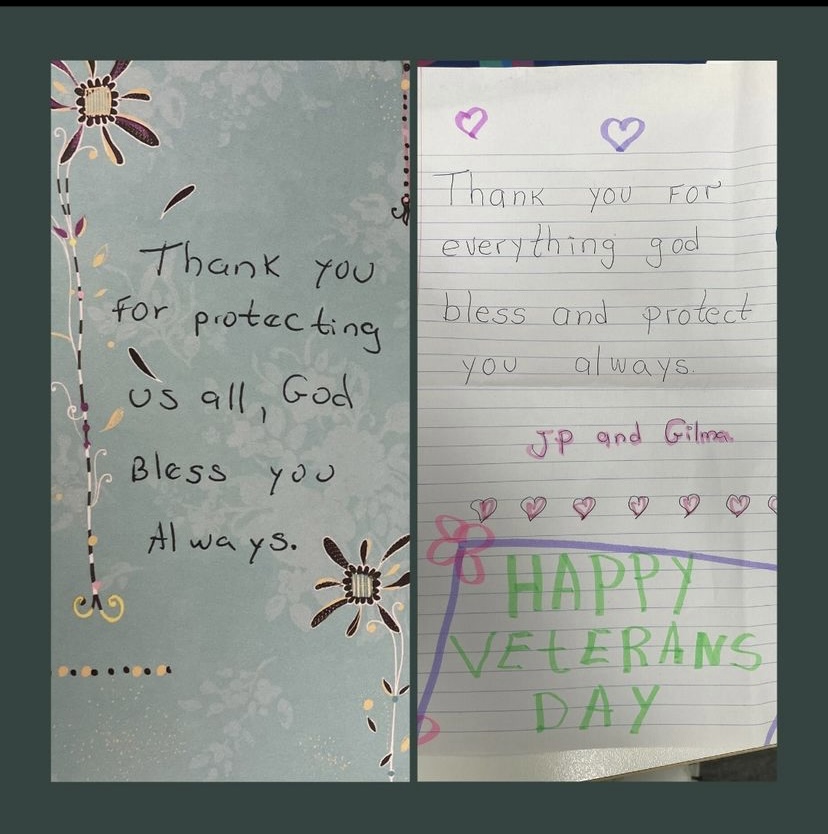 Thank you
For protecting
us all, God
Bless you
Always.
Thank you For
everything god
bless and protect
you always.
JP and Gilma
HAPPY
VEtERANS
DAY